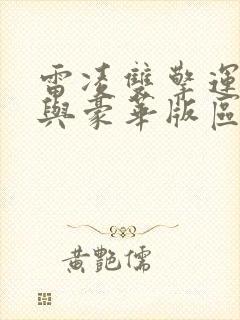 雷凌雙擎運
與豪華版區
黃艷儒